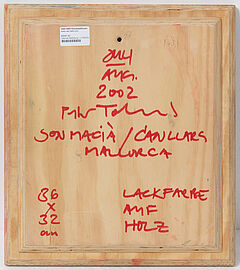 JULY
AUG.
2002
SON MACIÀ / CAN LLARG
MALLORCA
86 LACKFARBE
X AUF
32 HOLZ
cm